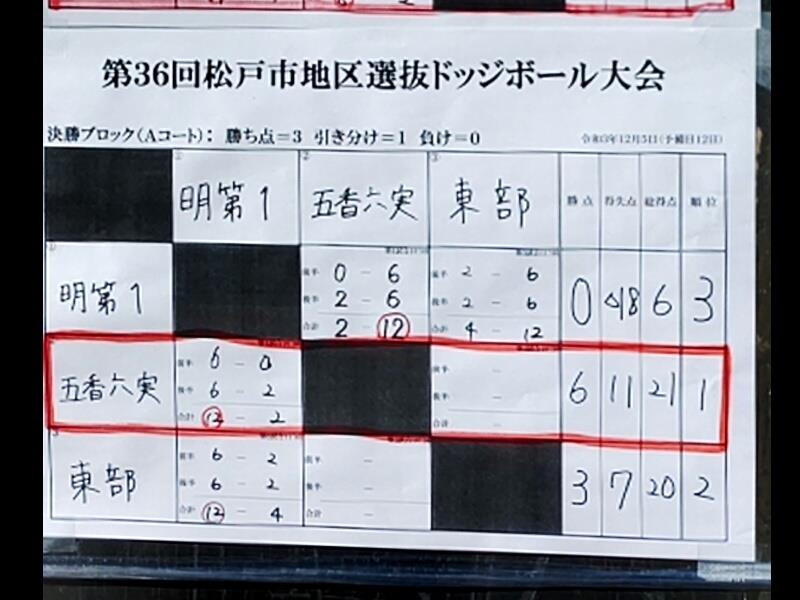 第36回松戸市地区選抜ドッジボール大会
決勝ブロック(Aコート): 勝ち点=3 引き分け=1 負け=0 令和3年12月5日(予備日12日)
① ② ③
明第1 五香六実 東部 勝点 得失点 総得点 順位
① 明第1
前半 0 - 6 前半 2 - 6
後半 2 - 6 後半 2 - 6
合計 2 - 12 合計 4 - 12
0 △18 6 3
五香六実
前半 6 - 0 前半 -
後半 6 - 2 後半 -
合計 12 - 2 合計 -
6 11 21 1
東部
前半 6 - 2 前半 -
後半 6 - 2 後半 -
合計 12 - 4 合計 -
3 7 20 2